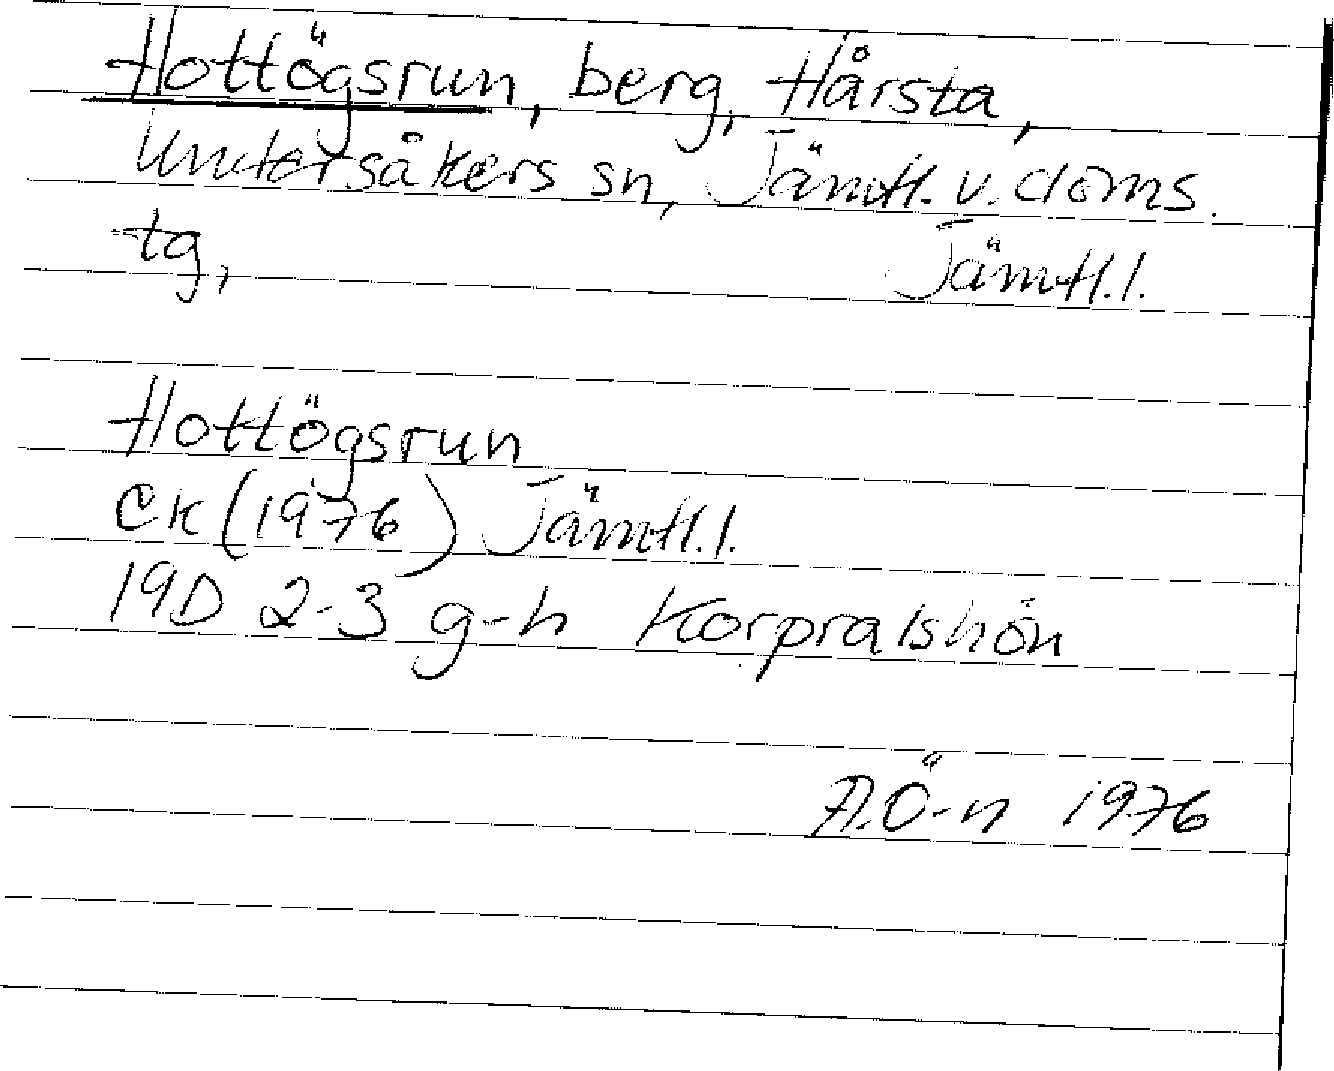 Hottögsrun, berg, Hårsta,
Undersåkers sn, Jämtl. v. doms.
tg, Jämtl. l.
Hottögsrun
CK (1976) Jämtl. l.
19D 2-3 g-h Korpralshön
A.Ö-n 1976